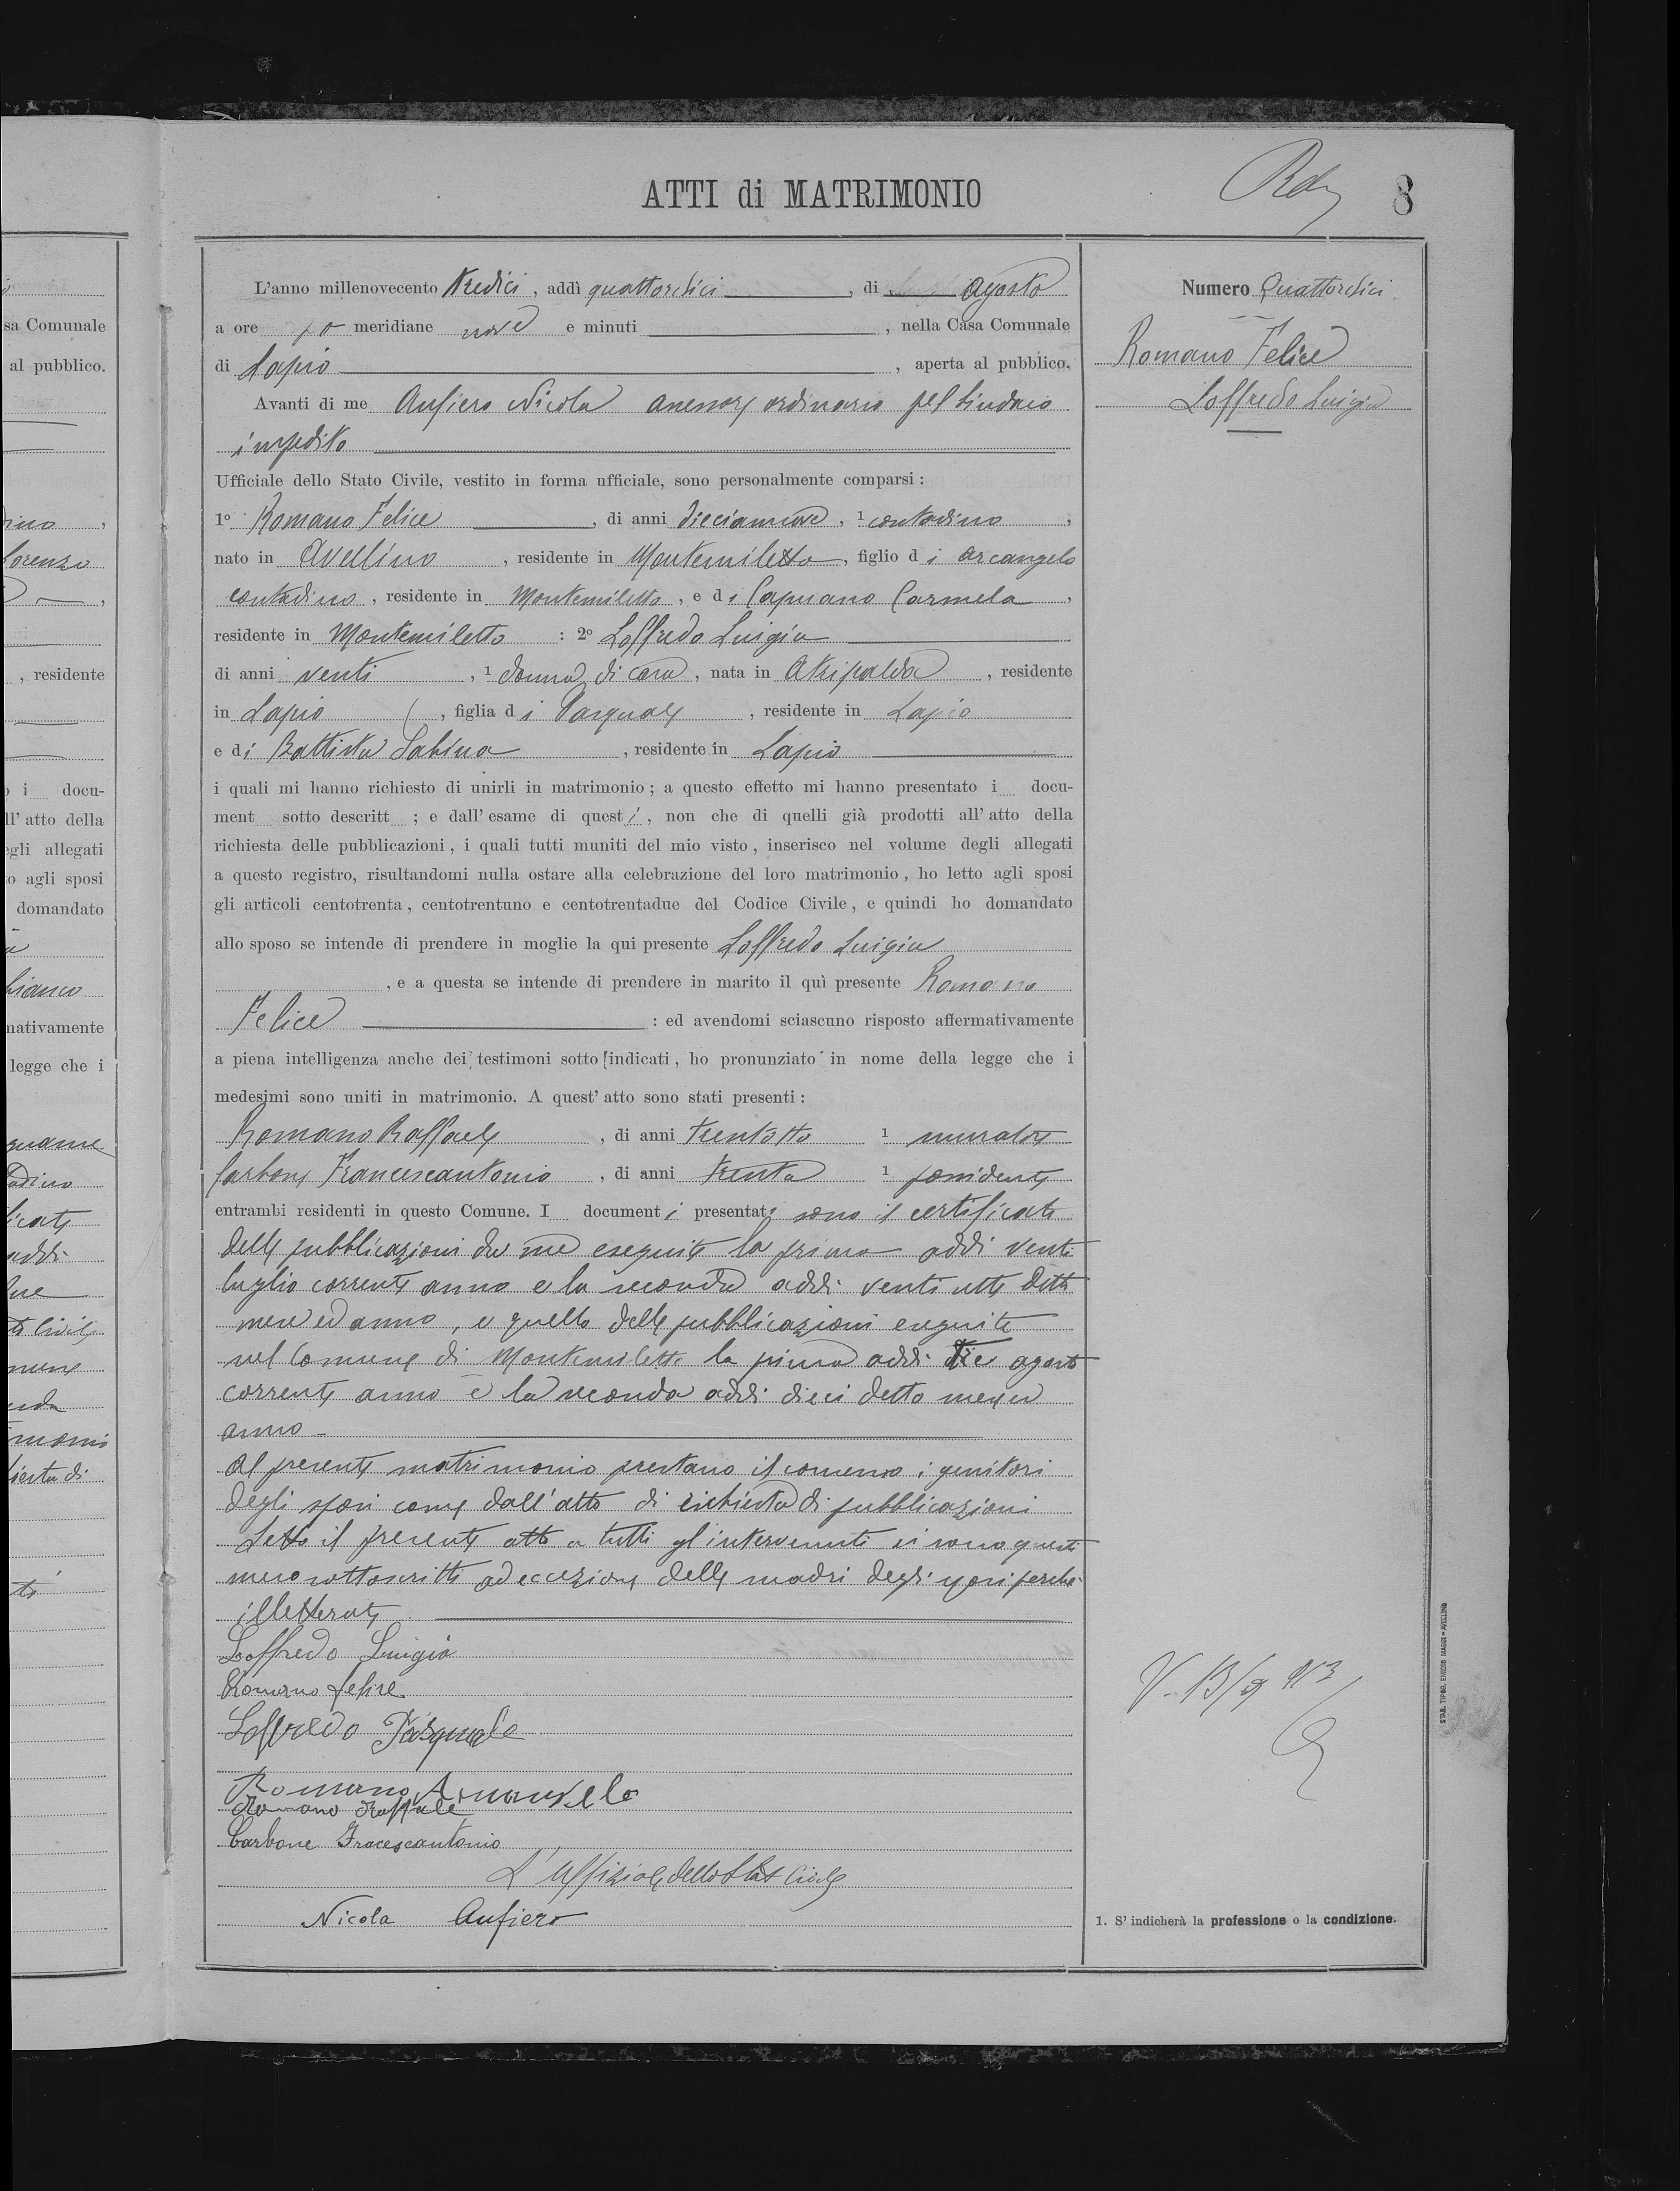 ATTI di MATRIMONIO
8
L'anno millenovecento tredici, addì quattordici, di agosto
a ore meridiane nove e minuti , nella Casa Comunale
di Lapio , aperta al pubblico.
Avanti di me Aufiero Nicola assessore ordinario pel Sindaco
impedito
Ufficiale dello Stato Civile, vestito in forma ufficiale, sono personalmente comparsi :
1º Romano Felice , di anni diecianove, 1 contadino ,
nato in Avellino , residente in Montemiletto, figlio di Arcangelo
contadino, residente in Montemiletto, e di Capuano Carmela ,
residente in Montemiletto : 2º Loffredo Luigia
di anni venti , 1 donna di casa, nata in Atripalda , residente
in Lapio , figlia di Pasquale , residente in Lapio
e di Battista Sabina , residente in Lapio
i quali mi hanno richiesto di unirli in matrimonio ; a questo effetto mi hanno presentato i docu-
ment sotto descritt ; e dall' esame di questi , non che di quelli già prodotti all' atto della
richiesta delle pubblicazioni , i quali tutti muniti del mio visto , inserisco nel volume degli allegati
a questo registro, risultandomi nulla ostare alla celebrazione del loro matrimonio , ho letto agli sposi
gli articoli centotrenta , centotrentuno e centotrentadue del Codice Civile , e quindi ho domandato
allo sposo se intende di prendere in moglie la qui presente Loffredo Luigia
, e a questa se intende di prendere in marito il quì presente Romano
Felice : ed avendomi sciascuno risposto affermativamente
a piena intelligenza anche dei testimoni sotto indicati , ho pronunziato in nome della legge che i
medesimi sono uniti in matrimonio. A quest' atto sono stati presenti :
Romano Raffaele , di anni trentotto 1 muratore
Carbone Francescantonio , di anni trenta 1 possidente
entrambi residenti in questo Comune. I documenti presentati sono il certificato
delle pubblicazioni da me eseguite la prima addì venti
luglio corrente anno e la seconda addì ventisette detto
mese ed anno, e quello delle pubblicazioni eseguite
nel Comune di Montemiletto la prima addì tre agosto
corrente anno e la seconda addì dieci detto mese ed
anno -
Al presente matrimonio prestano il consenso i genitori
degli sposi come dall'atto di richiesta di pubblicazioni
Letto il presente atto a tutti gl'intervenuti si sono questi
meco sottoscritti ad eccezione delle madri degli sposi perchè
illetterate.
Loffredo Luigia
Romano felice
Loffredo Pasquale
Romano Arcangelo
Romano Raffaele
Carbone Fracescantonio
L'Uffiziale dello Stato Civile
Nicola Aufiero
Numero Quattordici
Romano Felice
Loffredo Luigia
1. S' indicherà la professione o la condizione.
STAB. TIPOG. ENRICO MAGGI - AVELLINO
sa Comunale
al pubblico.
Lorenzo
, residente
i docu-
ll' atto della
egli allegati
o agli sposi
domandato
mativamente
legge che i